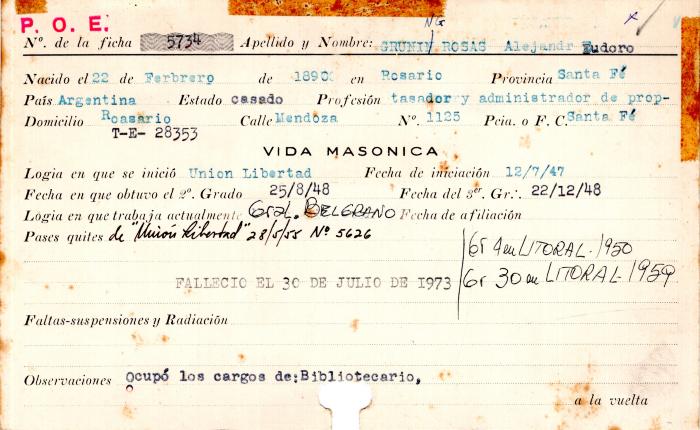 P. O. E.
NG X
Nº. de la ficha 5734 Apellido y Nombre: GRUNIN ROSAS Alejandr Eudoro
Nacido el 22 de Ferbrero de 1890 en Rosario Provincia Santa Fé
País Argentina Estado casado Profesión tasador y administrador de prop-
Domicilio Roasario Calle Mendoza Nº. 1125 Pcia. o F. C. Santa Fé
T-E- 28353
VIDA MASONICA
Logia en que se inició Union Libertad Fecha de iniciación 12/7/47
Fecha en que obtuvo el 2º. Grado 25/8/48 Fecha del 3er Gr.: 22/12/48
Logia en que trabaja actualmente Gral. BELGRANO Fecha de afiliación
Pases quites de "Unión Libertad" 28/5/55 Nº 5626
Gr 4 en LITORAL - 1950
Gr 30 en LITORAL - 1959
FALLECIO EL 30 DE JULIO DE 1973
Faltas-suspensiones y Radiación
Observaciones Ocupó los cargos de: Bibliotecario,
a la vuelta